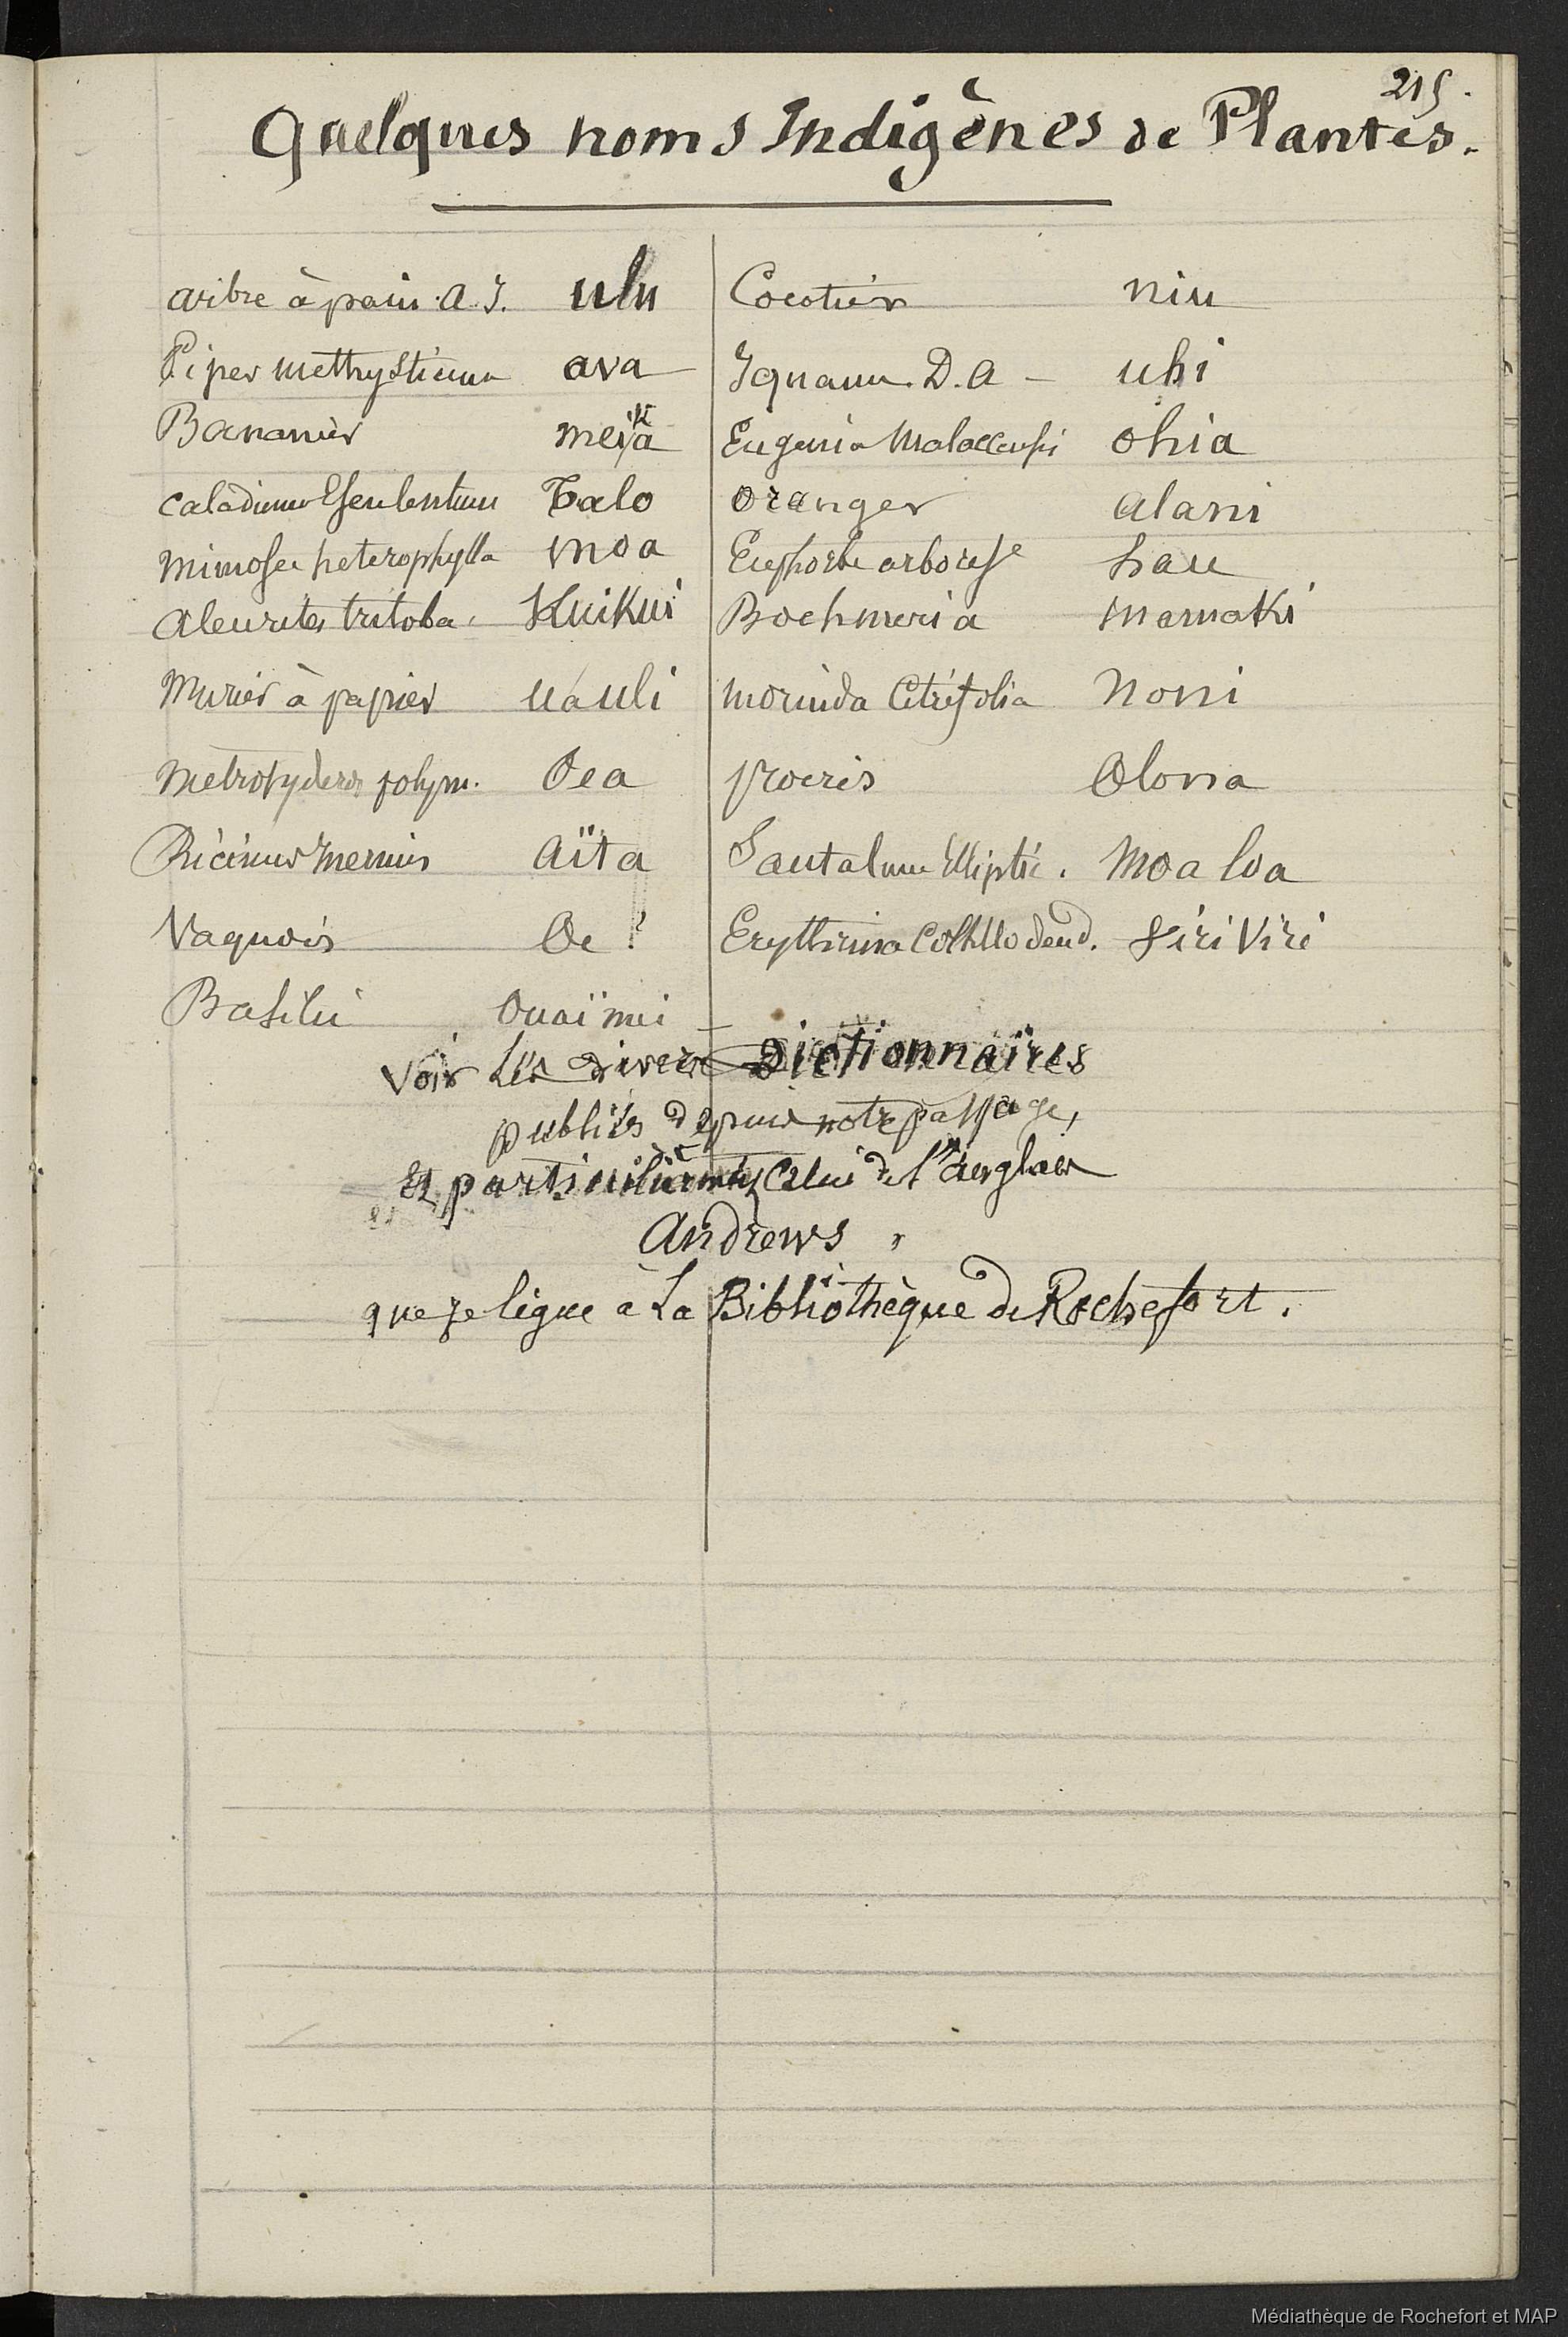 215.
Quelques noms Indigènes de Plantes.
arbre à pain. A. I. ulu
Piper methysticum ava
Bananier meïa
Caladium Esculentum Talo
mimosa heterophylla moa
Aleurites triloba. Kuikui
Murier à papier uauli
Metrosyderos polym. Oea
Ricinus Inermis Aïta
Vaquois Oe ?
Basilic Ouaï mei
Cocotier niu
Igname. D. A - uhi
Eugenia Malaccensis ohia
oranger alani
Euphorbe arboresc hau
Boehmeria mamaki
morinda Citrifolia Noni
procris Olona
Santalum Elliptic. Moa loa
Erythrina Corallodend. Viri Viri
Voir Les divers Dictionnaïres
publiés depuis notre passage,
Et particulièrement Celui de l'anglais
Andrews,
que je lègue à La Bibliothèque de Rochefort.
Médiathèque de Rochefort et MAP